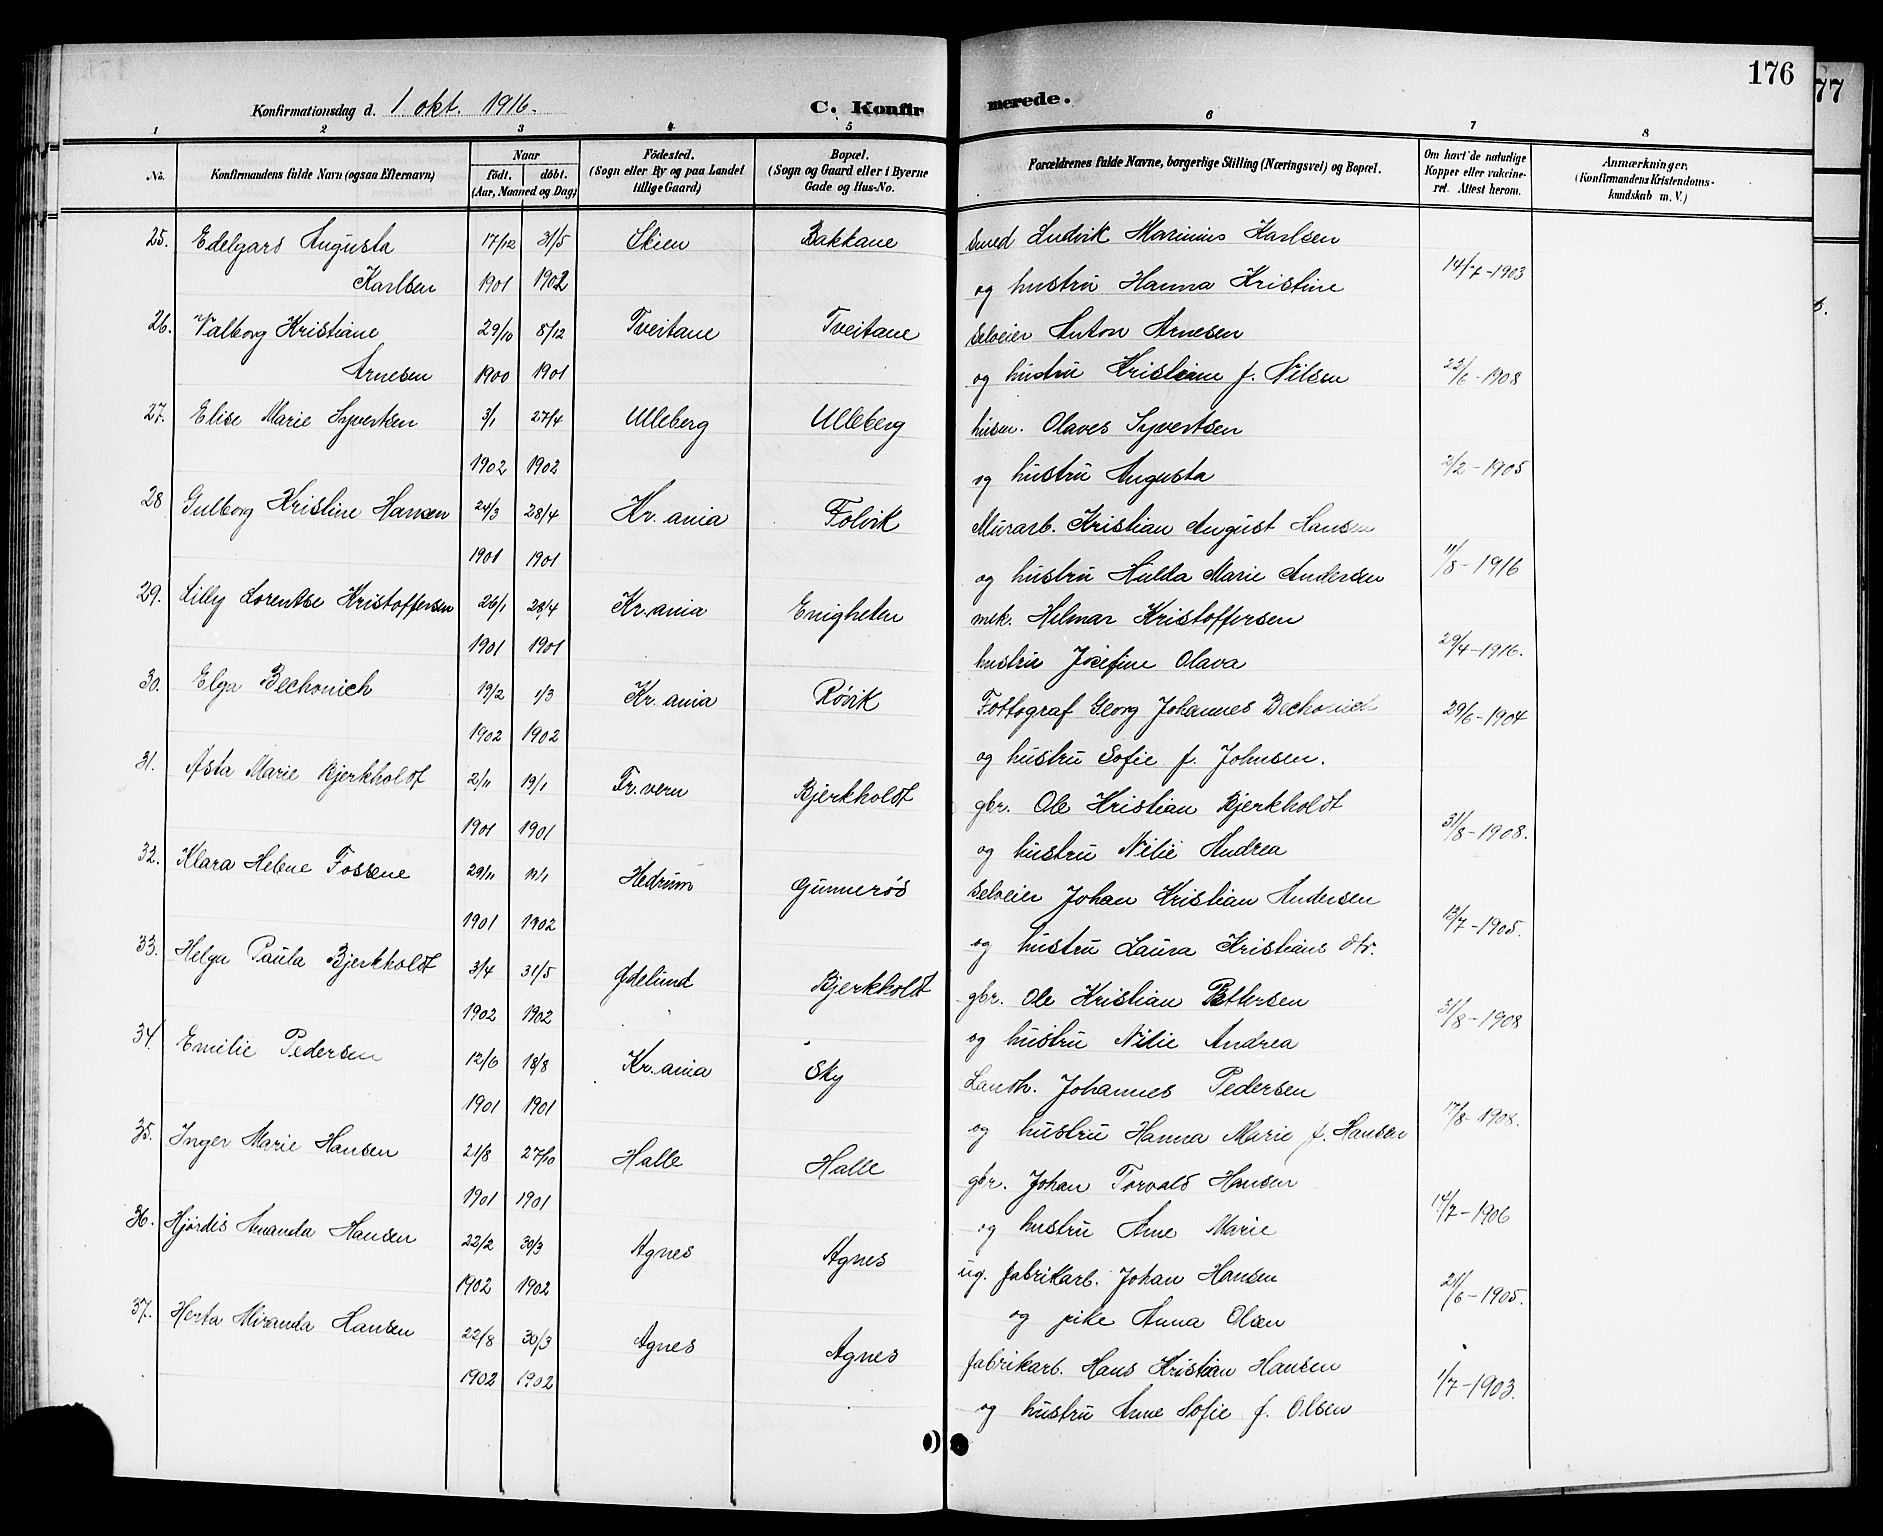 176
77
Konfirmationsdag d. 1 okt. 1916.
C. Konfirmerede.
1 2 3 4 5 6 7 8
No.
Konfirmandens fulde Navn (ogsaa Efternavn)
Naar
født. døbt.
(Aar, Maaned og Dag)
Fødested.
(Sogn eller By og paa Landet tillige Gaard)
Bopæl.
(Sogn og Gaard eller i Byerne Gade og Hus-No.
Forældrenes fulde Navne, borgerlige Stilling (Næringsvei) og Bopæl.
Om havt de naturlige Kopper eller vakcineret. Attest herom.
Anmærkninger,
(Konfirmandens Kristendomskundskab m. V.)
25. Edelgard Augusta 17/12 31/5 Skien Bakkane Smed Ludvik Marinius Karlsen
Karlsen 1901 1902 og hustru Hanna Kristine 14/7-1903
26. Valborg Kristiane 29/10 8/12 Tveitane Tveitane Selveier Anton Arnesen
Arnesen 1900 1901 og hustru Kristiane f. Nilsen 22/6-1908
27. Elise Marie Syvertsen 3/1 27/4 Ulleberg Ulleberg husm. Olaves Syvertsen
1902 1902 og hustru Augusta 2/2-1905
28 Gulborg Kristine Hansen 24/3 28/4 Kr.ania Folvik Murarb. Kristian August Hansen
1901 1901 og hustru Hulda Marie Andersen 11/8-1916
29. Lilly Lorentse Kristoffersen 26/1 28/4 Kr.ania Enigheten mek. Helmar Kristoffersen
1901 1901 hustru Josefine Olava 29/4-1916.
30. Elga Bechonich 19/2 1/3 Kr.ania Røvik Fottograf Georg Johannes Bechonich 29/6-1904
1902 1902 og hustru Sofie f. Johnsen.
31. Asta Marie Bjerkholdt 2/11 19/1 Fr.vern Bjerkholdt gbr. Ole Kristian Bjerkholdt
1901 1901 og hustru Nilie Andrea 31/8-1908.
32. Klara Helene Fossene 29/11 Hedrum Gunnerød Selveier Johan Kristian Andersen
1901 1902 og hustru Laura Kristians dtr. 13/7-1905.
33. Helga Paula Bjerkholdt 3/4 31/5 Ødelund Bjerkholdt gbr. Ole Kristian Pettersen
1902 1902 og hustru Nilie Andrea 31/8-1908
34. Emilie Pedersen 12/6 18/8 Kr.ania Sky Johannes Pedersen
1901 1901 og hustru Hanna Marie f. Hansen 17/8-1908.
35. Inger Marie Hansen 21/8 27/10 Halle Halle gbr. Johan Torvald Hansen
1901 1901 og hustru Ane Marie 14/7-1906
36. Hjørdis Amanda Hansen 22/2 30/3 Agnes Agnes ug. fabrikarb. Johan Hansen
1902 1902 og pike Anna Olsen 21/6-1905.
37. Herta Miranda Hansen 22/8 30/3 Agnes Agnes fabrikarb. Hans Kristian Hansen
1902 1902 og hustru Anne Sofie f. Olsen 1/7-1903.